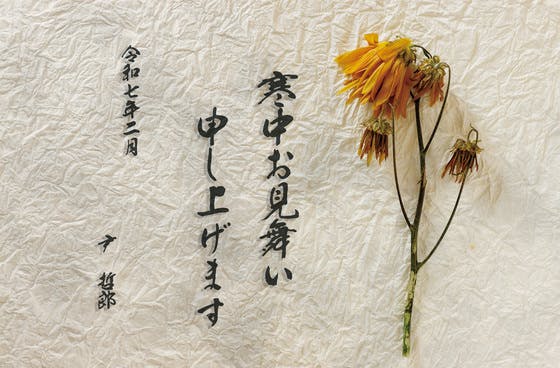 寒中お見舞い
申し上げます
令和七年二月
哲郎